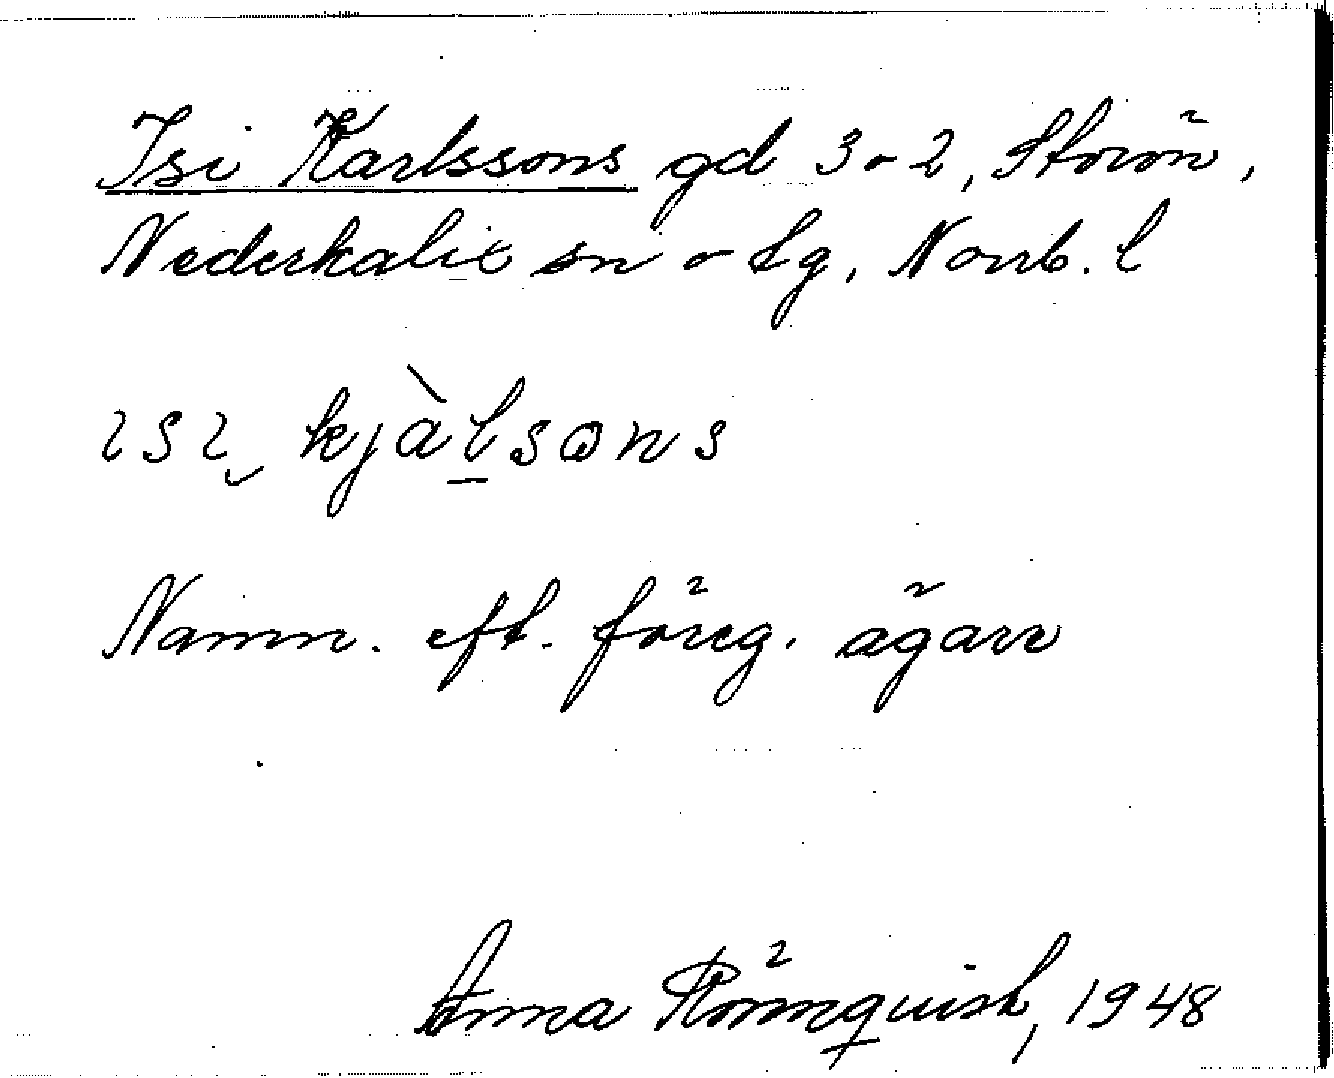 Isi Karlssons gd 3 o 2, Storön,
Nederkalix sn o tg, Norrb. l
ɩsɩ̮ kjàl̠sɷns
Namn. eft. föreg. ägare
Anna Rönnquist, 1948